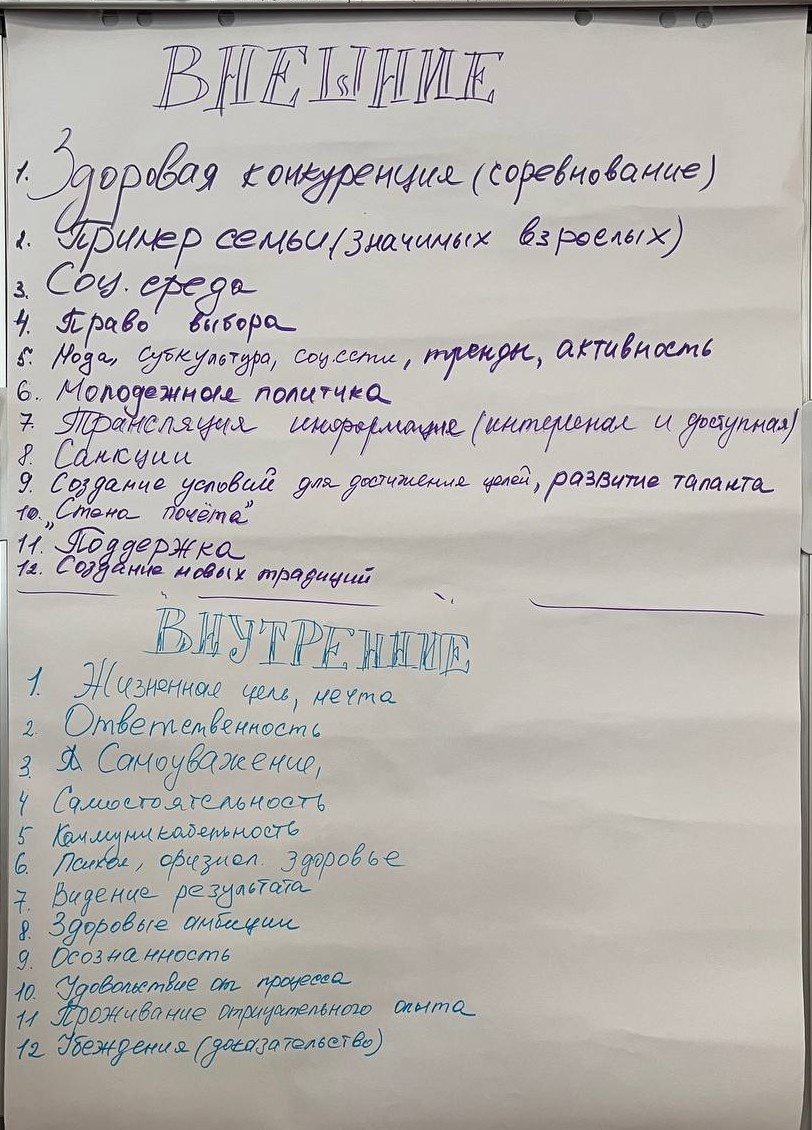 ВНЕШНИЕ
1. Здоровая конкуренция (соревнование)
2. Пример семьи (значимых взрослых)
3. Соц. среда
4. Право выбора
5. Мода, субкультура, соц.сети, тренды, активность
6. Молодежная политика
7. Трансляция информации (интересная и доступная)
8. Санкции
9. Создание условий для достижения целей, развитие таланта
10. „Стена почёта"
11. Поддержка
12. Создание новых традиций
ВНУТРЕННИЕ
1. Жизненная цель, мечта
2. Ответственность
3. Самоуважение,
4 Самостоятельность
5 Коммуникабельность
6. Психол, физиол. здоровье
7. Видение результата
8. Здоровые амбиции
9. Осознанность
10. Удовольствие от процесса
11 Проживание отрицательного опыта
12 Убеждения (доказательство)